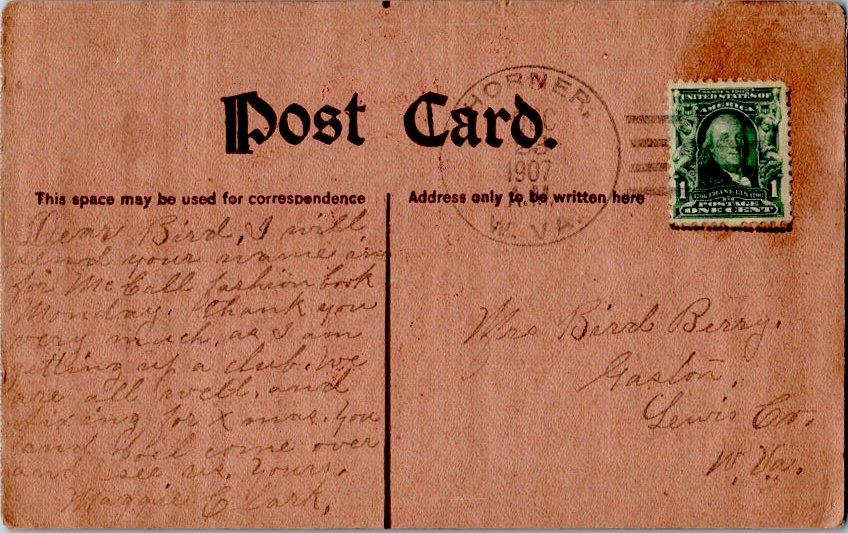 Post Card.
HORNER,
1907
W. VA.
SERIES 1902
UNITED STATES OF
AMERICA
1 FRANKLIN 1
POSTAGE
ONE CENT
This space may be used for correspondence
Address only to be written here
Dear Bird, I will
send your name in
for McCall fashion book
Monday. thank you
very much, as I am
getting up a club. We
are all well, and
fixing for Xmas. You
and come over
and see us. Yours,
Maggie Clark,
Mrs Bird Berry.
Gaston,
Lewis Co.
W. Va.